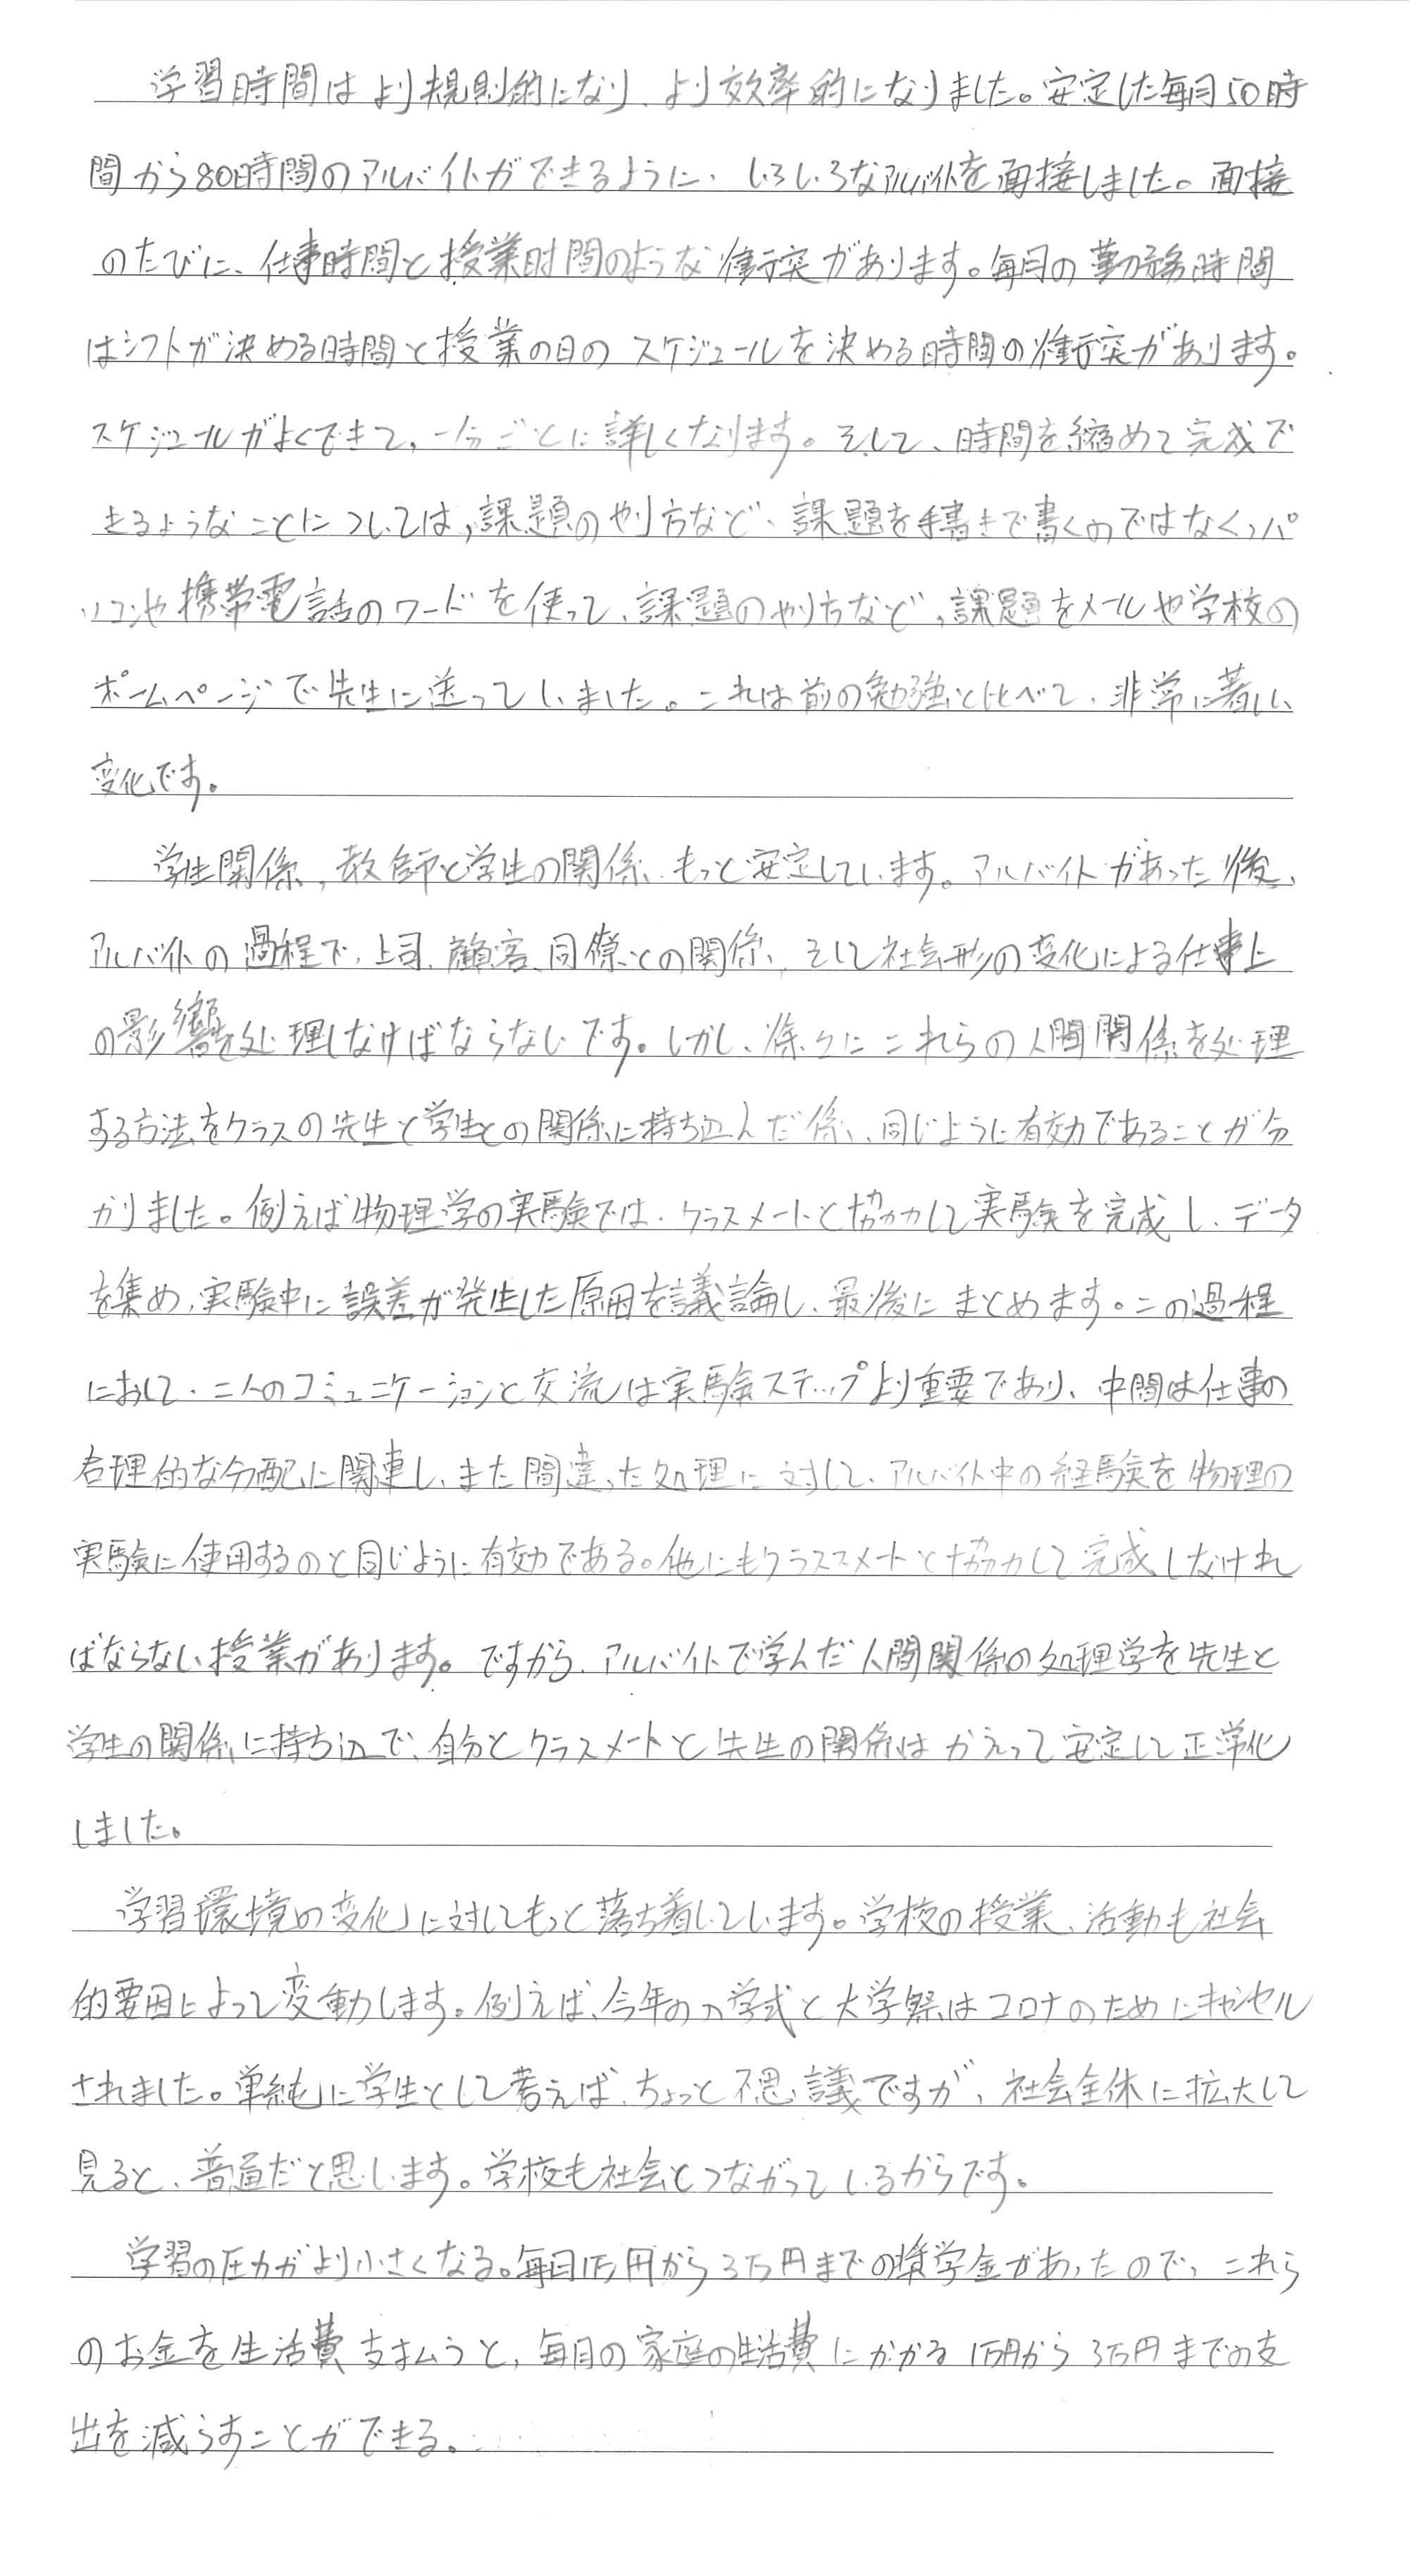 学習時間はより規則的になり、より効率的になりました。安定した毎月50時
間から80時間のアルバイトができるように、いろいろなアルバイトを面接しました。面接
のたびに、仕事時間と授業時間のような衝突があります。毎月の勤務時間
はシフトが決める時間と授業の日のスケジュールを決める時間の衝突があります。
スケジュールがよくできて、一分ごとに詳しくなります。そして、時間を縮めて完成で
きるようなことについては、課題のやり方など、課題を手書きで書くのではなく、パ
ソコンや携帯電話のワードを使って、課題のやり方など、課題をメールや学校の
ホームページで先生に送っていました。これは前の勉強と比べて、非常に著しい
変化です。
学生関係、教師と学生の関係、もっと安定しています。アルバイトがあった後、
アルバイトの過程で、上司、顧客、同僚との関係、そして社会形の変化による仕事上
の影響を処理しなければならないです。しかし、徐々にこれらの人間関係を処理
する方法をクラスの先生と学生との関係に持ち込んだ係、同じように有効であることが分
かりました。例えば物理学の実験では、クラスメートと協力して実験を完成し、データ
を集め、実験中に誤差が発生した原因を議論し、最後にまとめます。この過程
において、二人のコミュニケーションと交流は実験ステップより重要であり、中間は仕事の
合理的な分配に関連し、また間違った処理に対して、アルバイト中の経験を物理の
実験に使用するのと同じように有効である。他にもクラススメートと協力して完成しなけれ
ばならない授業があります。ですから、アルバイトで学んだ人間関係の処理学を先生と
学生の関係に持ち込で、自分とクラスメートと先生の関係はかえって安定して正常化
しました。
学習環境の変化に対してもっと落ち着いています。学校の授業、活動も社会
的要因によって変動します。例えば、今年の入学式と大学祭はコロナのためにキャンセル
されました。単純に学生として考えば、ちょっと不思議ですが、社会全体に拡大して
見ると、普通だと思います。学校も社会とつながっているからです。
学習の圧力がより小さくなる。毎月1万円から3万円までの奨学金があったので、これら
のお金を生活費支払うと、毎月の家庭の生活費にかかる1万円から3万円までの支
出を減らすことができる。